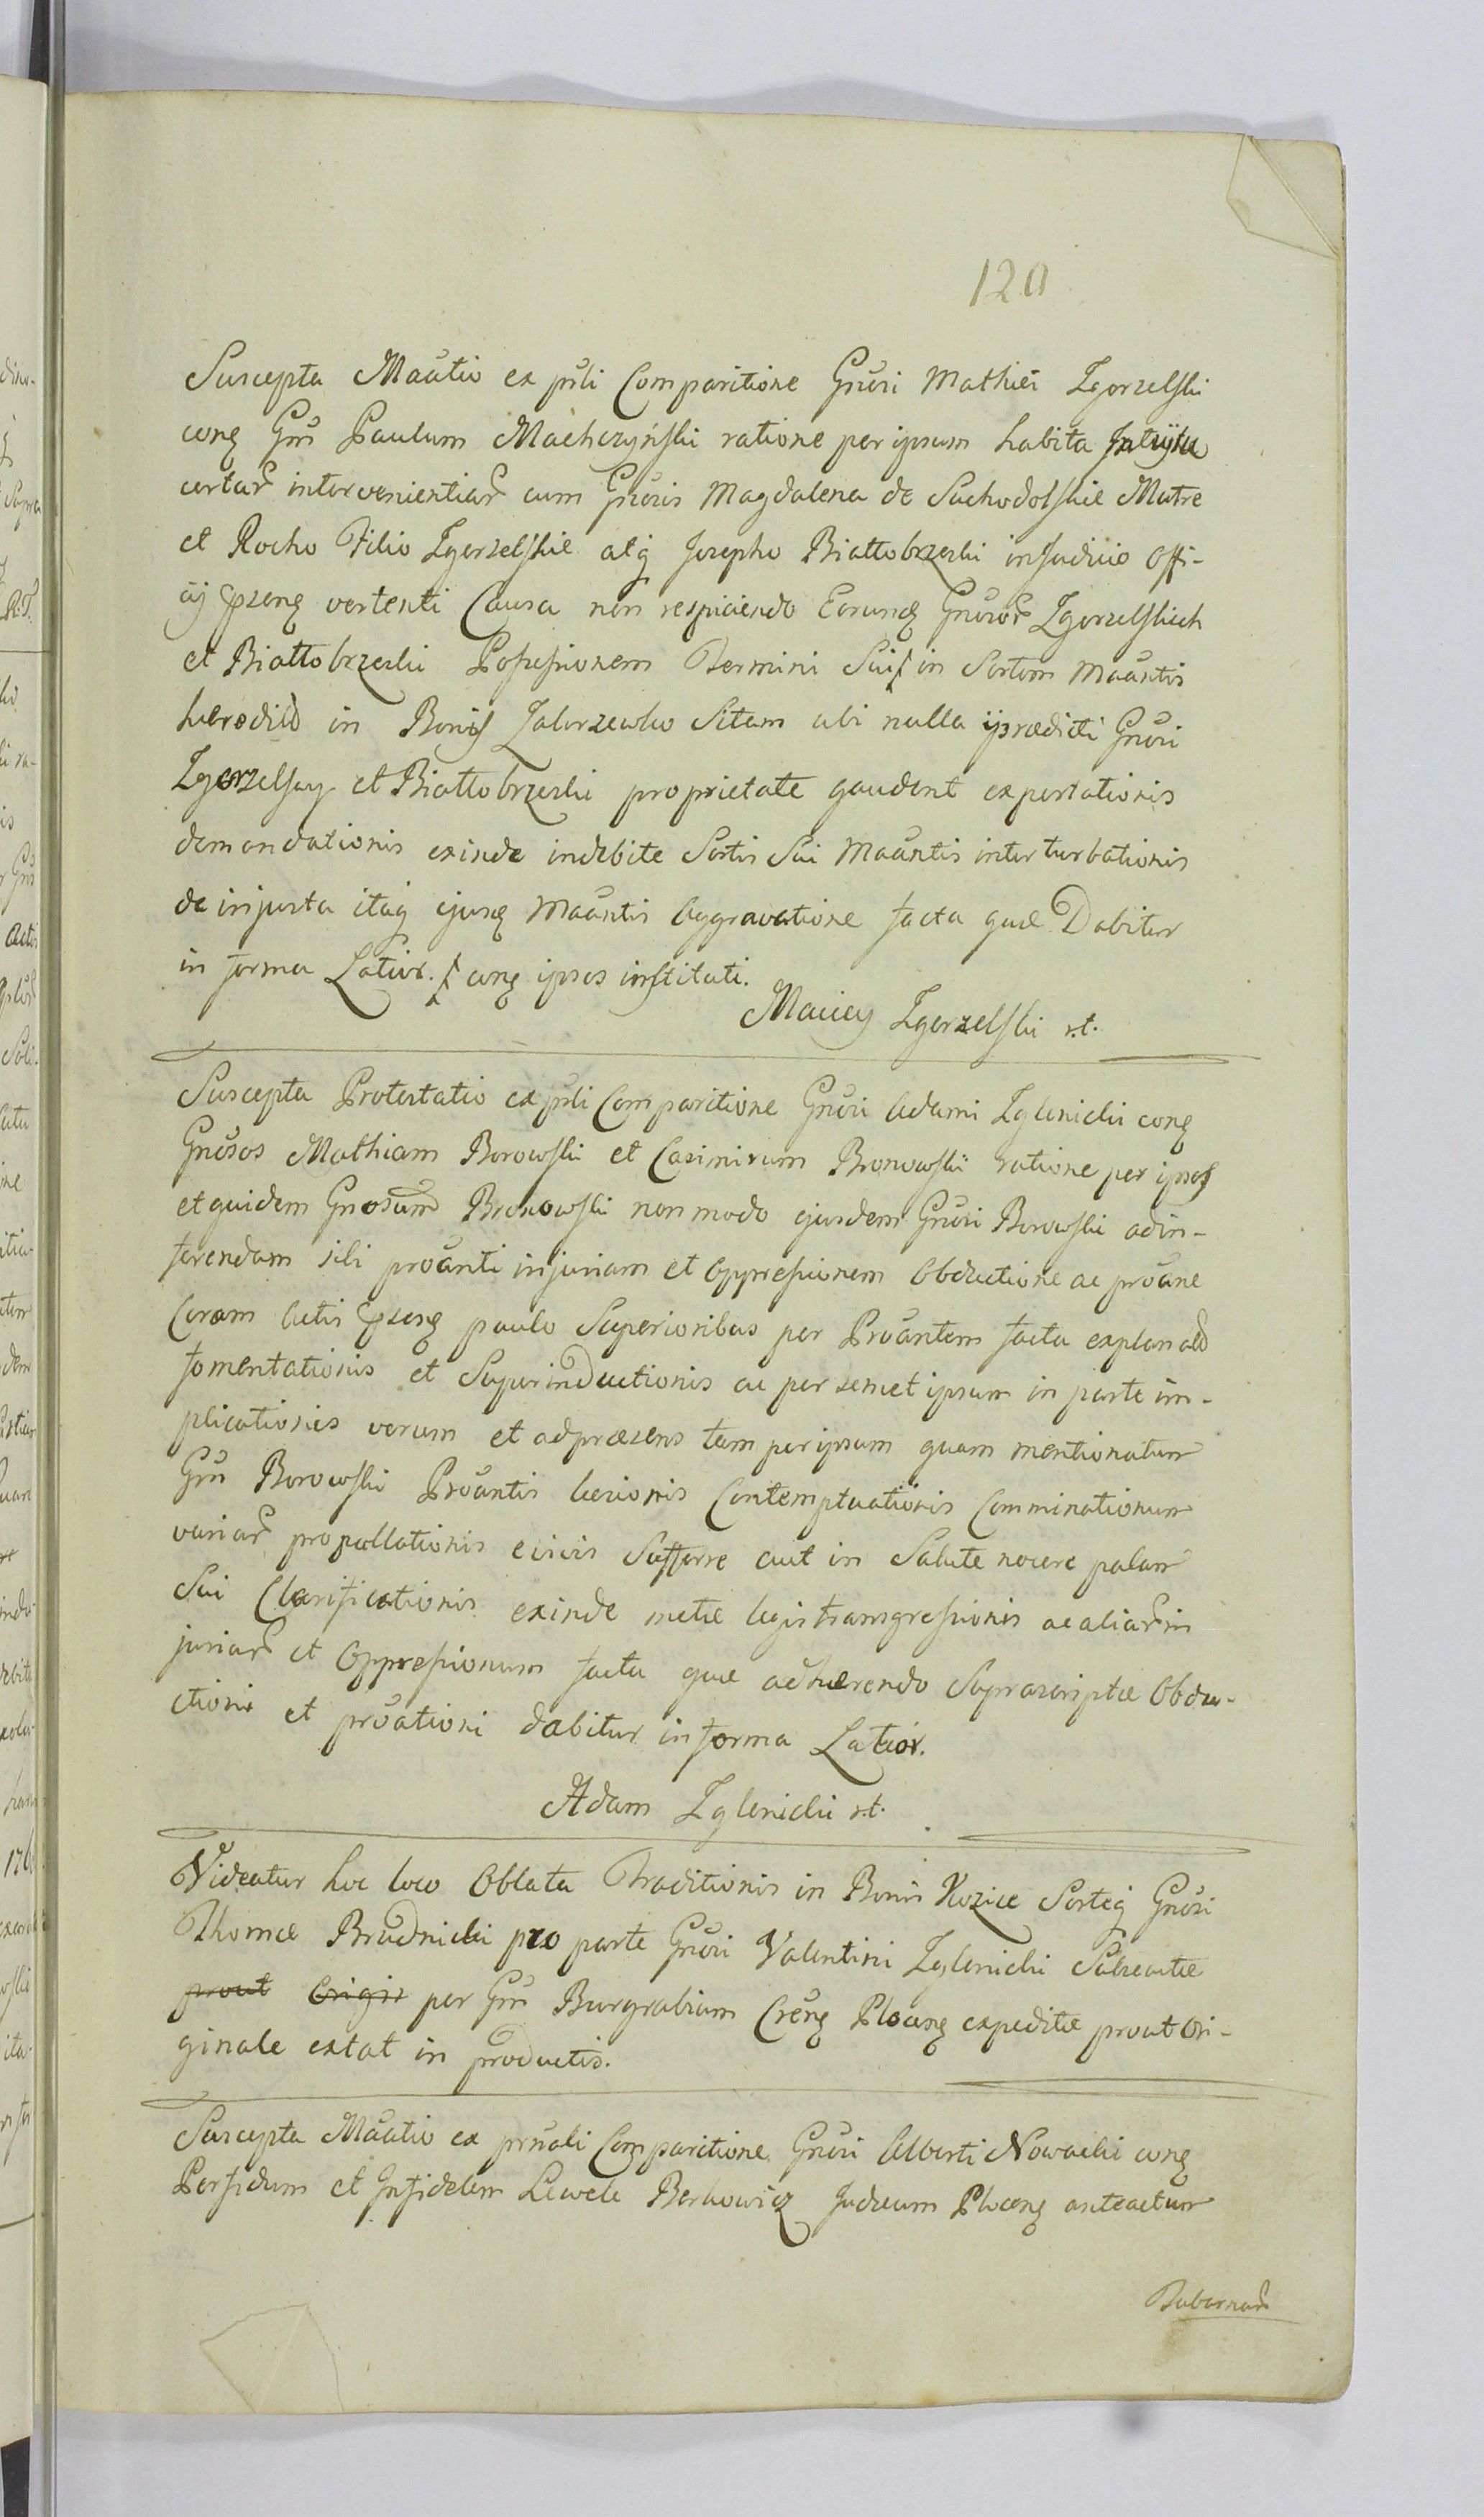 120
Suscepta Maãtio ex pñli Comparitione Gnõsi Mathiei Zgorzelski
cong Gm̃ Paulum Machczyński ratione per ipsum habita
certar̃ intervenientiar̃ cum Gnõsis Magdalena de Suchodolskie Matre
et Rocho Filio Zgorzelskie atq Josepho Białłobrzeski in Judicio Offi-
cij vertenti Causa non respiciendo Eorund Gnõsor̃ Zgorzelskich
et Białłobrzeski Possessionem Termini Sui in Sortem Maãntis
hæredit̃ in Bonis Zaborzewko Sitam ubi nulla prædicti Gnõsi
Zgorzelscy et Białłobrzeski proprietate gaudent expertationis
demandationis exinde indebite Sortis Sui Maãntis interturbationis
de injusta itaq ejusq Maãntis Aggravatione facta quæ Dabitur
in forma Latior. cong ipsos instituti.
Maciey Zgorzelski
Suscepta Protestatio ex pñli Comparitione Gnõsi Adami Zglenicki cong
Gnõsos Mathiam Borowski et Casimirum Bronowski ratione per ipsos
et quidem Gnosum Bronowski non modo ejusdem Gnõsi Borowski ad in-
ferendam sibi proãnti injuriam et Oppressionem Obductione ac proãne
Coram Actis paulo Superioribus per Proãntem facta explanat̃
fomentationis et Superinductionis ac per semet ipsum in parte im-
plicationis verum et ad præsens tam per ipsum quam mentionatum
Gm̃ Borowski Proãntis læsionis Contemptuationis Comminationum
variar̃ propullationis evicis Sufferre aut in Salute nocere palam
Sui Clarificationis exinde metæ legis transgressionis ac aliar̃ in
juriar̃ et Oppressionum facta quæ adhærendo Suprascriptæ Obdu-
ctioni et proãtioni dabitur in forma Latior.
Adam Zglenicki
Videatur hoc loco Oblata Traditionis in Bonis Kozice Sorteq Gnõsi
Thomæ Brudnicki pro parte Gnõsi Valentini Zglenicki Subsecutæ
prout Origin per Gm̃ Burgrabium Cren̄g Ploceng expeditæ prout Ori-
ginale extat in productis.
Suscepta Maãtio ex prnãli Comparitione Gnõsi Alberti Nowacki cong
Perfidum et Infidelem Lewek Berkowicz Judæum Ploceng anteactum
Tabernar̃